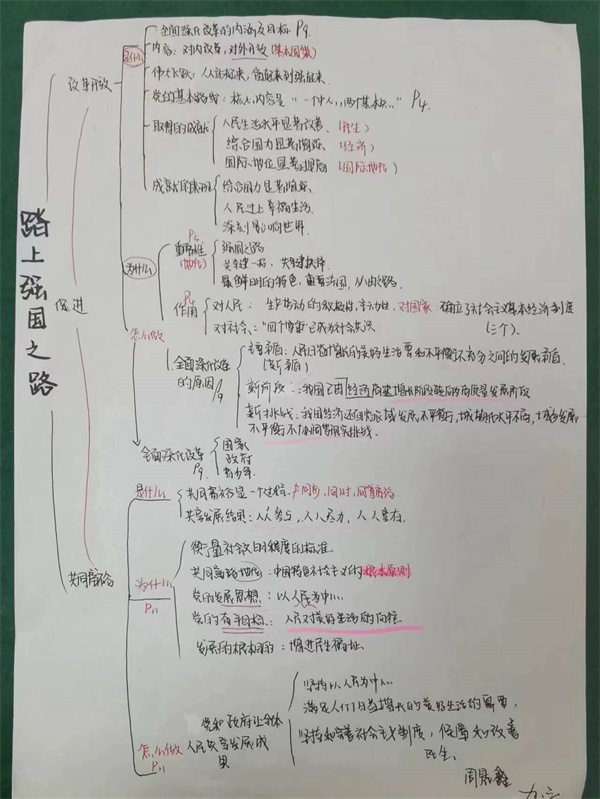 踏上强国之路
改革开放
促进
共同富裕
是什么
全面深化改革的内涵及目标 P9.
内容：对内改革，对外开放（基本国策）
伟大飞跃：人从站起来，富起来到强起来.
党的基本路线：核心内容是“一个中心，两个基本点” P4.
取得的成就
人民生活水平显著改善、（民生）
综合国力显著增强、（经济）
国际地位显著提高（国际地位）
成就的表现
综合国力显著增强、
人民过上幸福生活、
深刻影响世界.
为什么
P4
重要性
（地位）
强国之路
最鲜明的特色，
P4
作用
对人民：生产劳动的积极性、主动性、对国家 确立了社会主义基本经济制度
（三个）.
对社会：“四个尊重”已成为社会共识
怎么做
全面深化改革
的原因
P9
主要矛盾：人民日益增长的美好生活需要和不平衡不充分之间的发展矛盾.
（新矛盾）
新阶段：我国已由经济高速增长阶段转向高质量发展阶段
新挑战：我国经济还面临区域发展不平衡，城镇化水平不高，城乡发展
不平衡不协调等现实挑战.
全面深化改革
P9.
国家
政府
青少年.
是什么
共同富裕是一个过程.
共享发展结果：人人参与，人人尽力，人人享有.
为什么
P11
衡量社会文明程度的标准.
共同富裕地位：中国特色社会主义的根本原则
党的发展思想：以人民为中心.
党的奋斗目标：人民对美好生活的向往
发展的根本目的：增进民生福祉.
怎么做
P11
党和政府让全体
人民共享发展成
果
坚持以人民为中心.
满足人们日益增长的美好生活的需要，
坚持和完善社会主义制度，保障和改善
民生.
周晨鑫